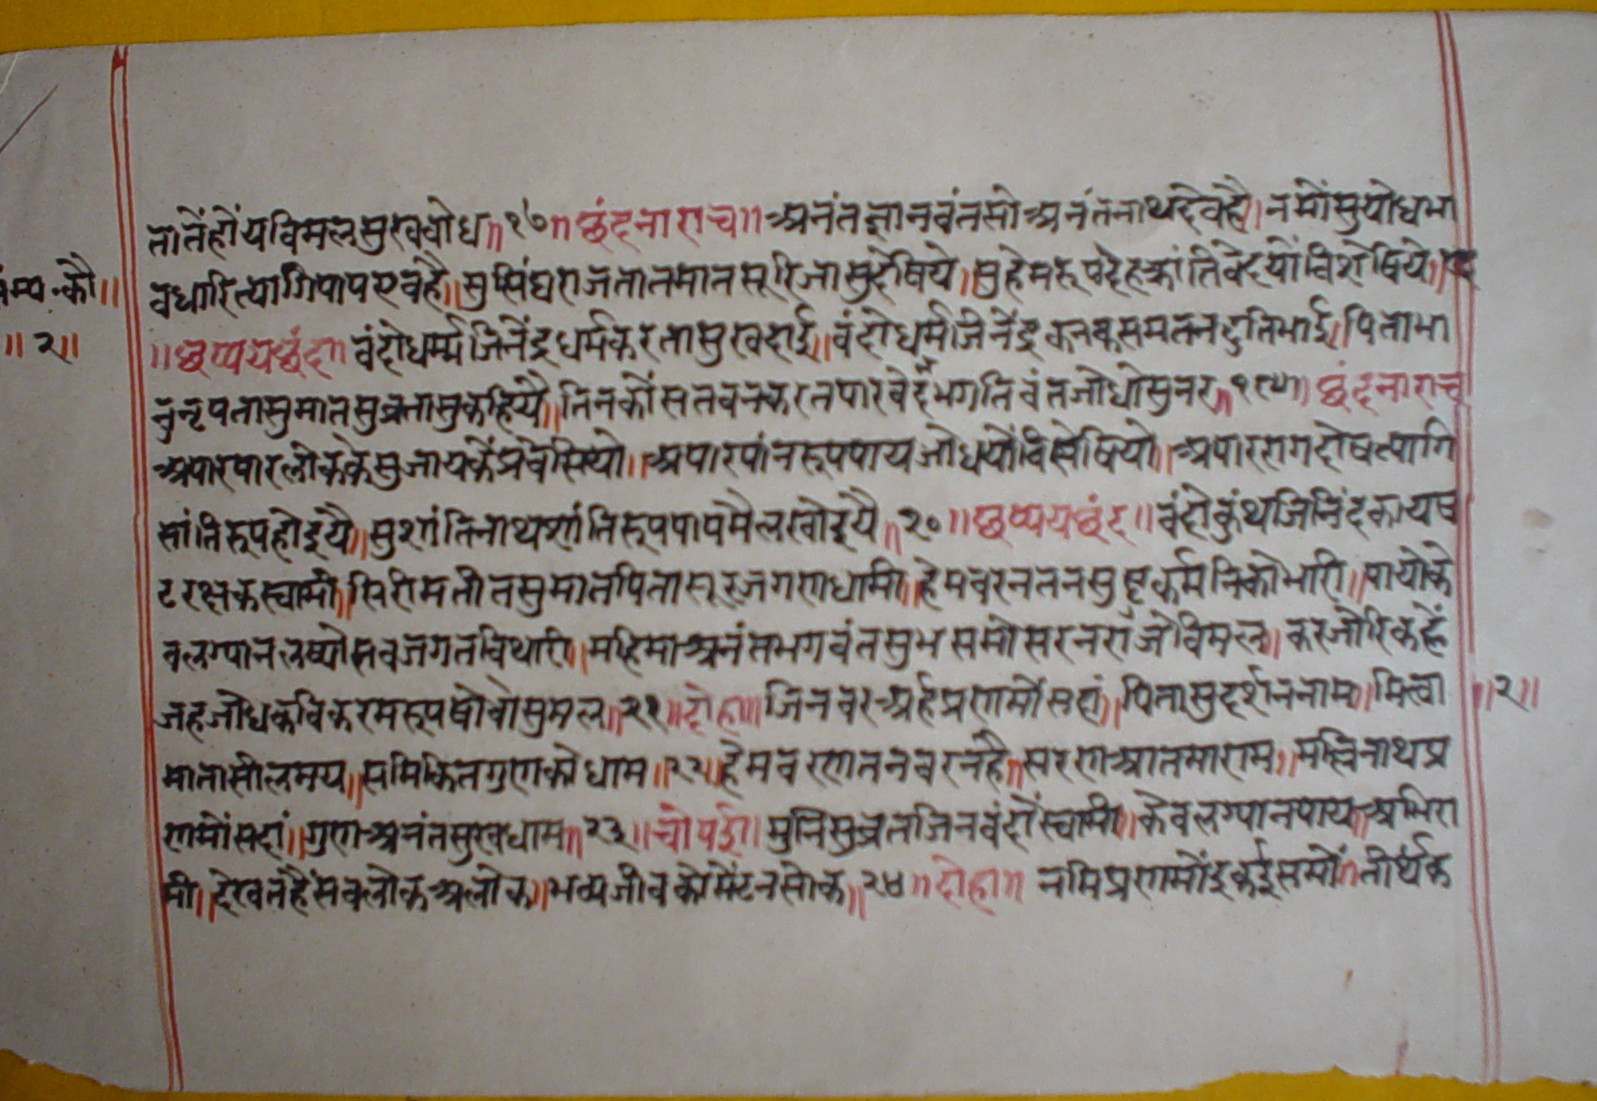 तातेंहोंयविमलसुखबोध॥१७॥छंदनाराच॥अनंतज्ञानवंतसोअनंतनाथदेवहै॥नमोंसुबोधभा
वधारित्यागिपापएवहै॥सुसिंघराजतातमातसूरिजासुदेषिये॥सुहेमरूपदेहकांतिवेदयोंविशेषिये॥
॥छप्पयछंद॥वंदोधर्म्मजिनेंद्रधर्मकरतासुखदाई॥वंदोधर्मजिनेंद्रकनकसमतनदुतिभाई॥पिताभा
नुनृपतासुमातसुव्रतासुकहिये॥तिनकौंसतवनकरत भगतिवंतजोधोसुनर॥१९॥छंदनाराच
अपारपारलोककेसुजायकैंप्रवेसियो॥अपारपांनरूपपायजोधयोंविसेषियो॥अपाररागदोषत्यागि
सांतिरूपहोइयै॥सुशांतिनाथशांतिरूपपापमैलखोइयै॥२०॥छप्पयछंद॥वंदोकुंथजिनिंदकायष
टरक्षकस्वामी॥सिरिमतीतसुमातपितासूरजगणधामी॥हेमवरनतनसु कर्मनिकोभारी॥पायोके
वलग्यानलष्योसवजगतविथारी॥महिमाअनंतभगवंतसुभसमोसरनराजैविमल॥करजोरिकहें
जहजोधकविकरमरूपषोवोसुमल॥२१॥दोहा॥जिनवरअर्हप्रणमोंसदां॥पितासुदर्शननाम॥मित्वा
मातासीलमय॥समिकितगुणकोधाम॥२२॥हेमवरणतनवरनहै॥सरणआतमाराम॥मल्लिनाथप्र
णमोंसदां॥गुणअनंतसुखधाम॥२३॥चोपई॥मुनिसुव्रतजिनवंदोंस्वामी॥केवलग्यानपायअभिरा
मी॥देखतहैंसबलोकअलोक॥भव्यजीवकोमेंटनसोक॥२४॥दोहा॥नमिप्रणमोंइकईसमों॥तीर्थक
कौ॥
॥२॥
॥२॥